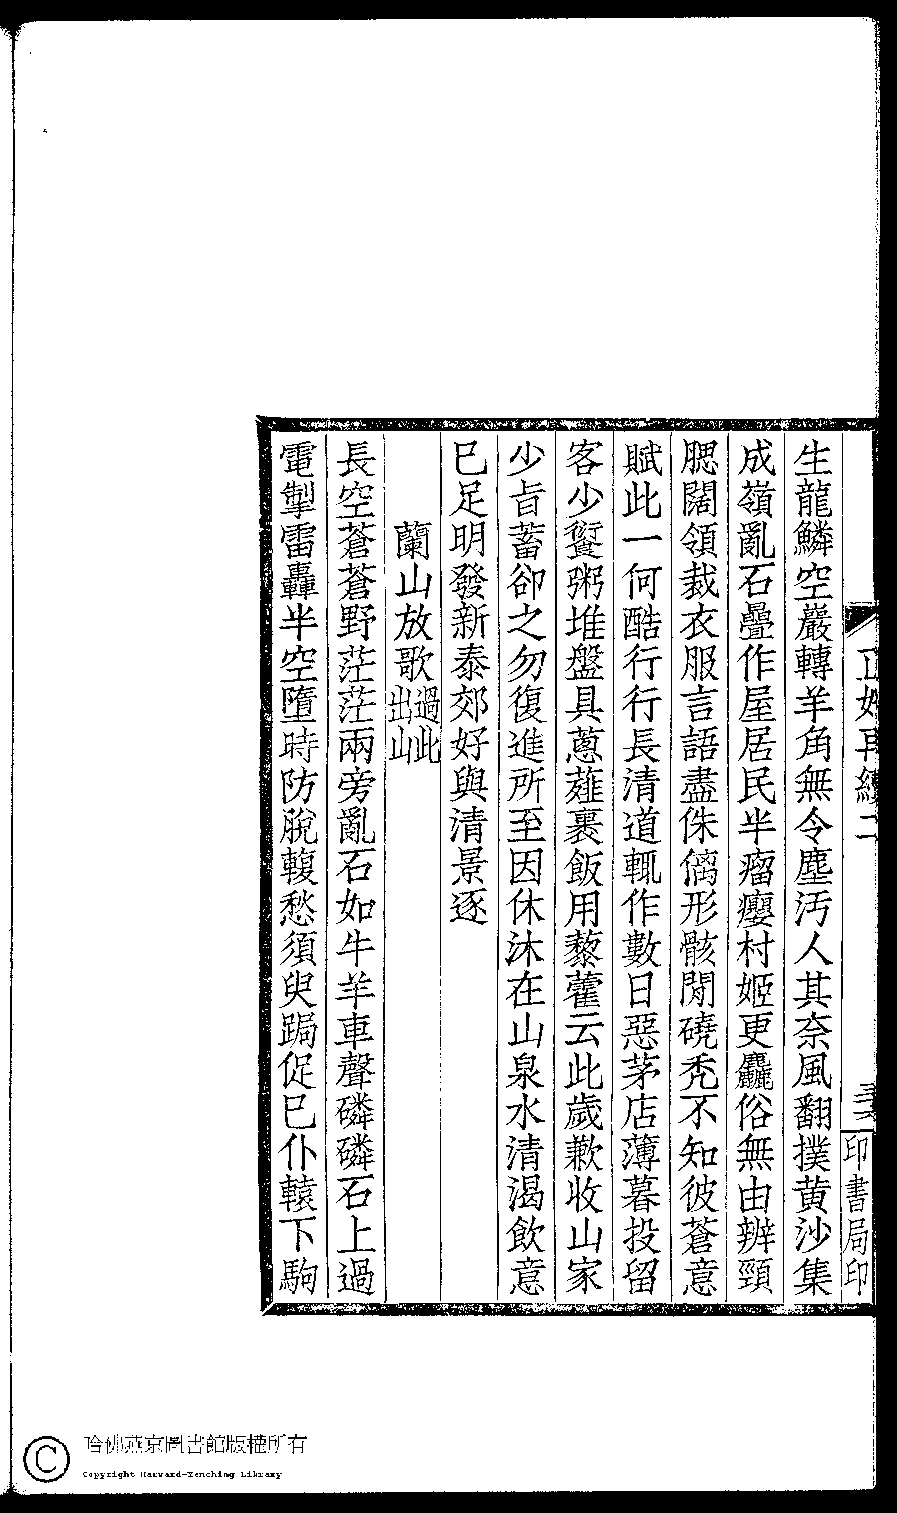 正始再續二
印書局印
生龍鱗空巖轉羊角無令塵汚人其奈風翻撲黄沙集
成嶺亂石疊作屋居民半瘤癭村姬更麤俗無由辨頸
腮闊領裁衣服言語盡侏㒧形骸閒磽秃不知彼蒼意
賦此一何酷行行長清道輒作數日惡茅店薄暮投留
客少饘粥堆盤具蔥薤裹飯用藜藿云此歲歉收山家
少旨蓄卻之勿復進所至因休沐在山泉水清渴飲意
已足明發新泰郊好與清景逐
蘭山放歌過此出山
長空蒼蒼野茫茫兩旁亂石如牛羊車聲磷磷石上過
電掣雷轟半空墮時防脫輹愁須臾跼促已仆轅下駒
哈佛燕京圖書館版權所有
Copyright Harvard-Yenching Library